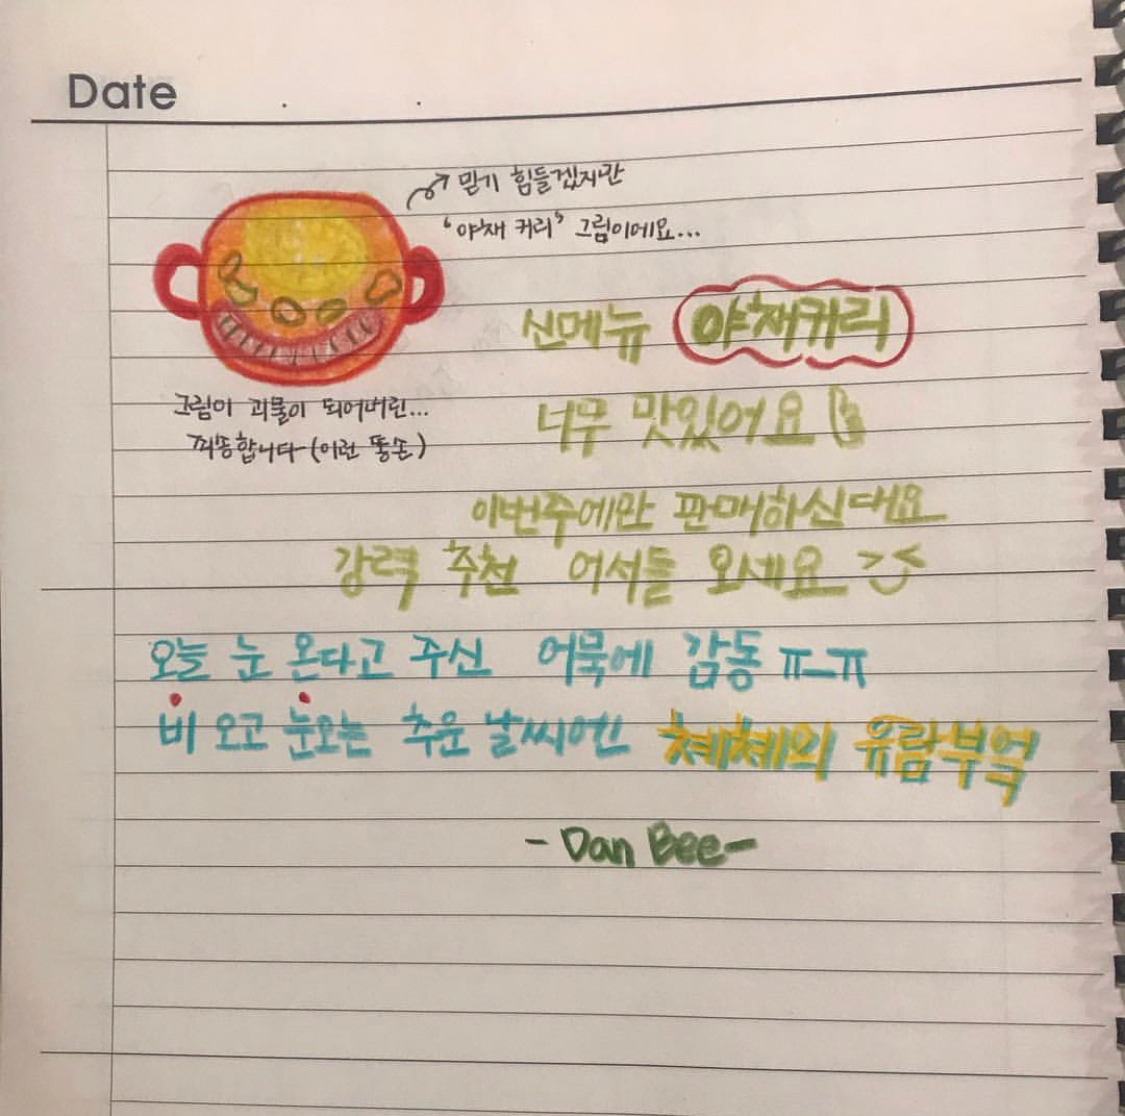 Date . .
믿기 힘들겠지만
"야채 커리" 그림이에요...
신메뉴 야채커리
그림이 괴물이 되어버린...
죄송합니다 (이런 똥손)
너무 맛있어요
이번주에만 판매하신대요
강력 추천 어서들 오세요
오늘 눈 온다고 주신 어묵에 감동 ㅠ_ㅠ
비 오고 눈오는 추운 날씨에엔 체체의 유람부엌
- Dan Bee -